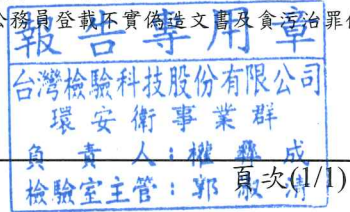 公務員登載不實偽造文書及貪污治罪
報告專用章
台灣檢驗科技股份有限公司
環安衛事業群
負責人：楊彝成
檢驗室主管：郭淑清
頁次(1/1)